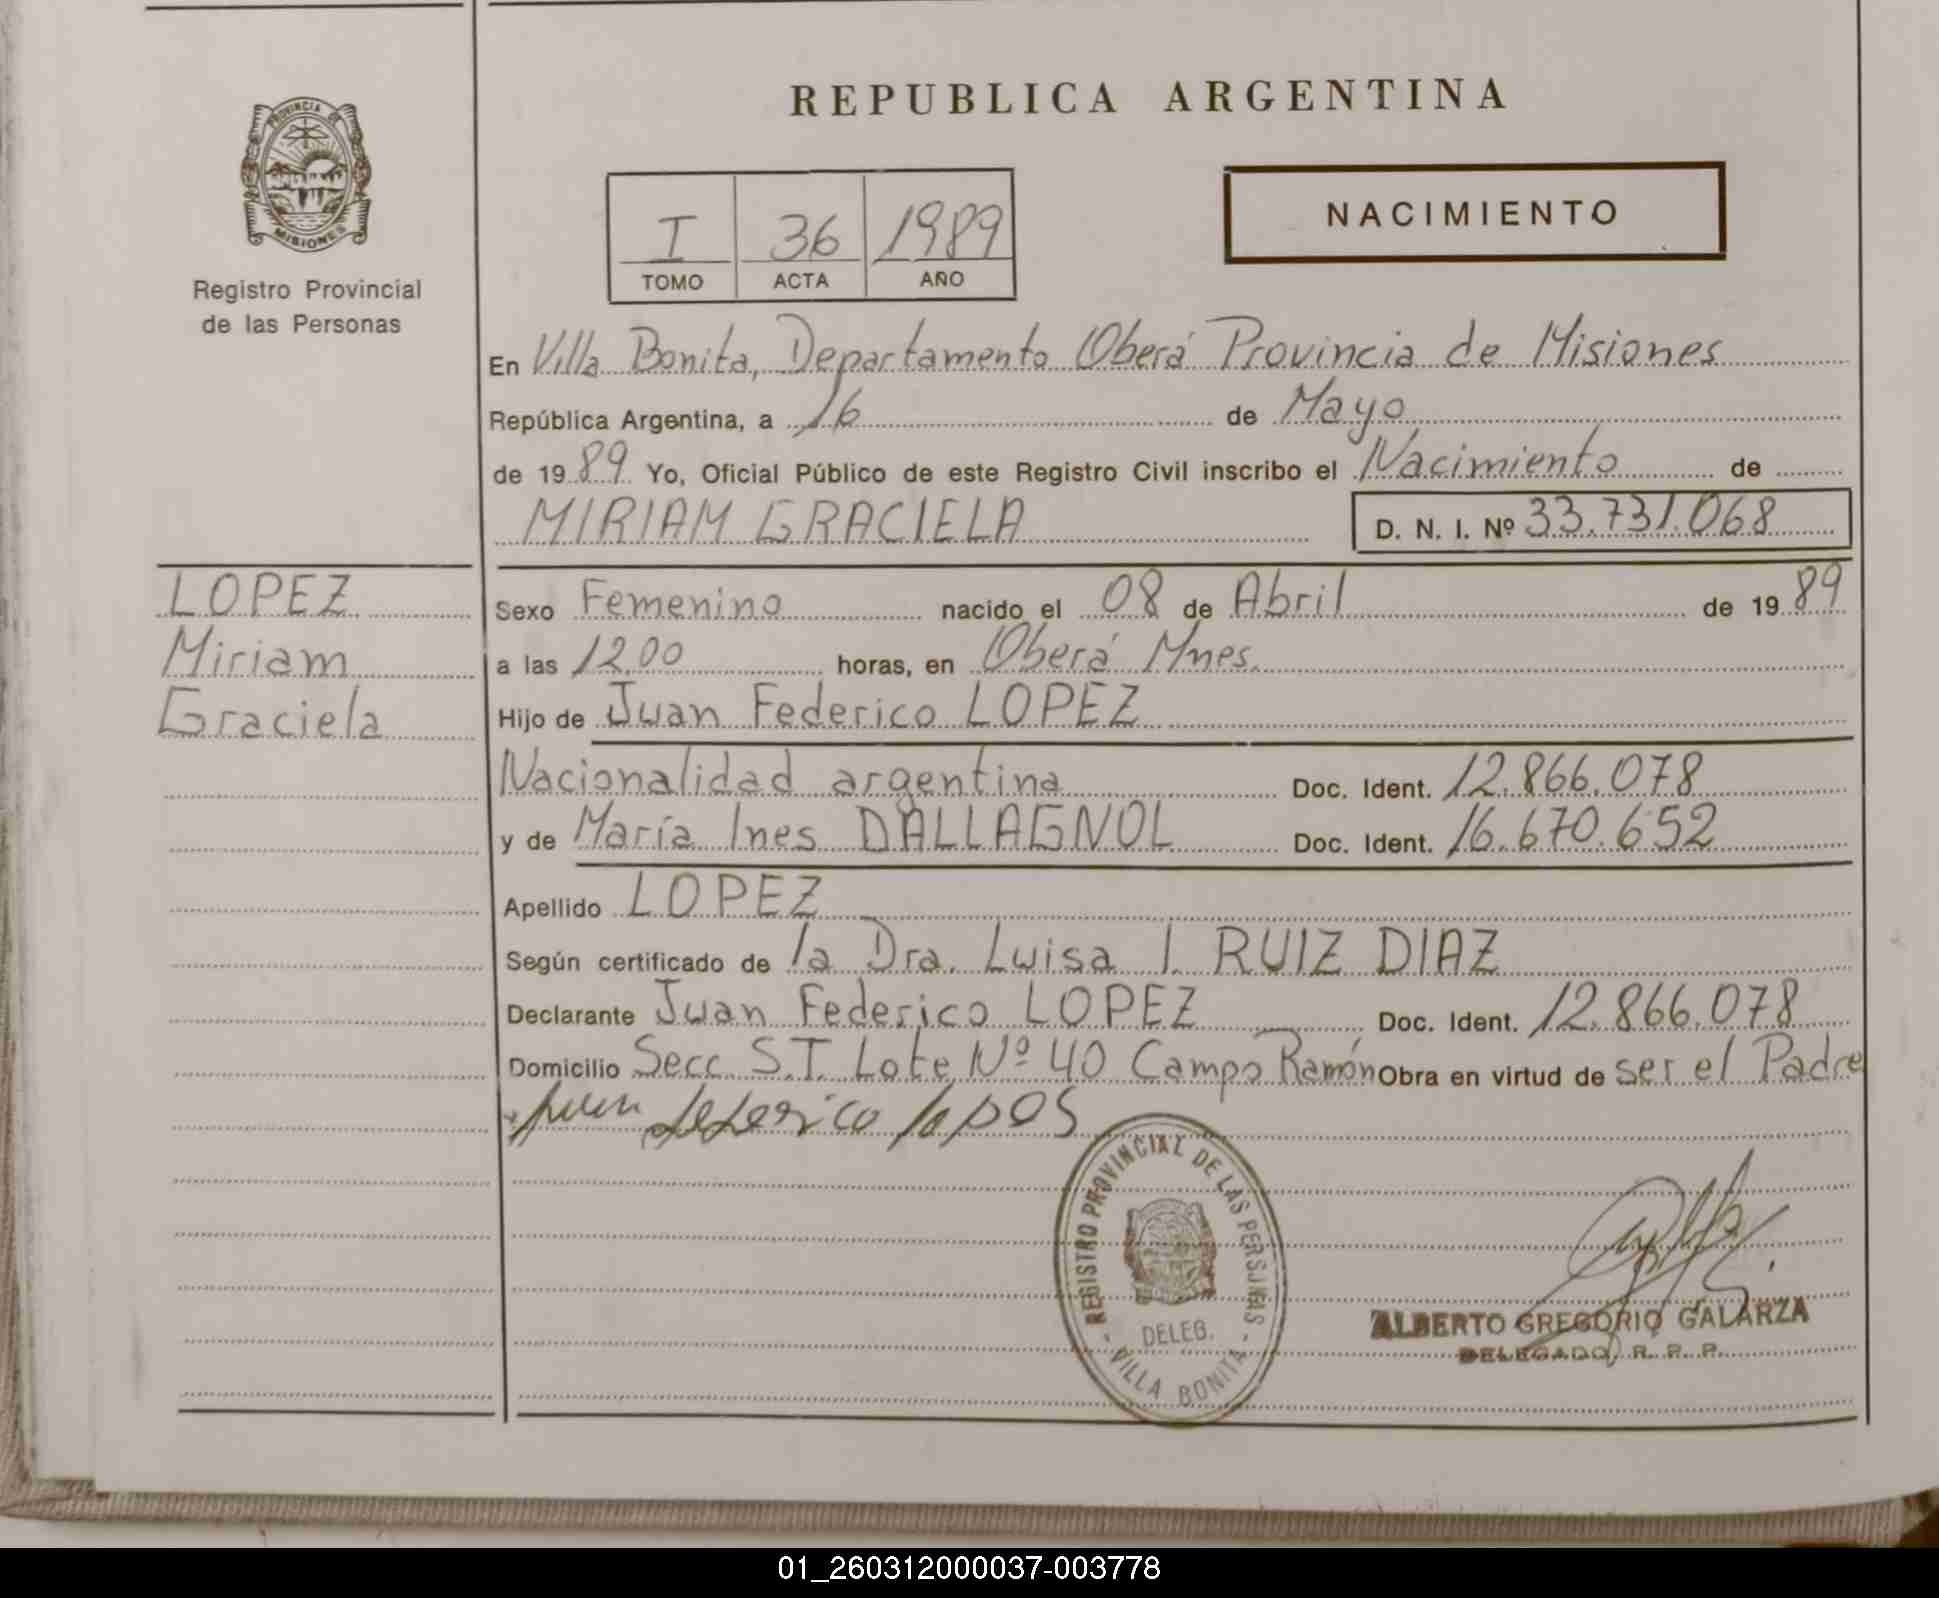 REPUBLICA ARGENTINA
PROVINCIA DE
MISIONES
Registro Provincial
de las Personas
I 36 1989
TOMO ACTA AÑO
NACIMIENTO
En Villa Bonita, Departamento Oberá Provincia de Misiones
República Argentina, a 16 de Mayo
de 1989 Yo, Oficial Público de este Registro Civil inscribo el Nacimiento de
MIRIAM GRACIELA D. N. I. Nº 33.731.068
LOPEZ
Miriam
Graciela
Sexo Femenino nacido el 08 de Abril de 1989
a las 12,00 horas, en Oberá Mnes.
Hijo de Juan Federico LOPEZ
Nacionalidad argentina Doc. Ident. 12.866.078
y de María Ines DALLAGNOL Doc. Ident. 16.670.652
Apellido LOPEZ
Según certificado de la Dra. Luisa I. RUIZ DIAZ
Declarante Juan Federico LOPEZ Doc. Ident. 12.866.078
Domicilio Secc. S.T. Lote Nº 40 Campo Ramón Obra en virtud de ser el Padre
juan federico lopes
REGISTRO PROVINCIAL DE LAS PERSONAS
DELEG.
- VILLA BONITA -
ALBERTO GREGORIO GALARZA
DELEGADO R. P. P.
01_260312000037-003778